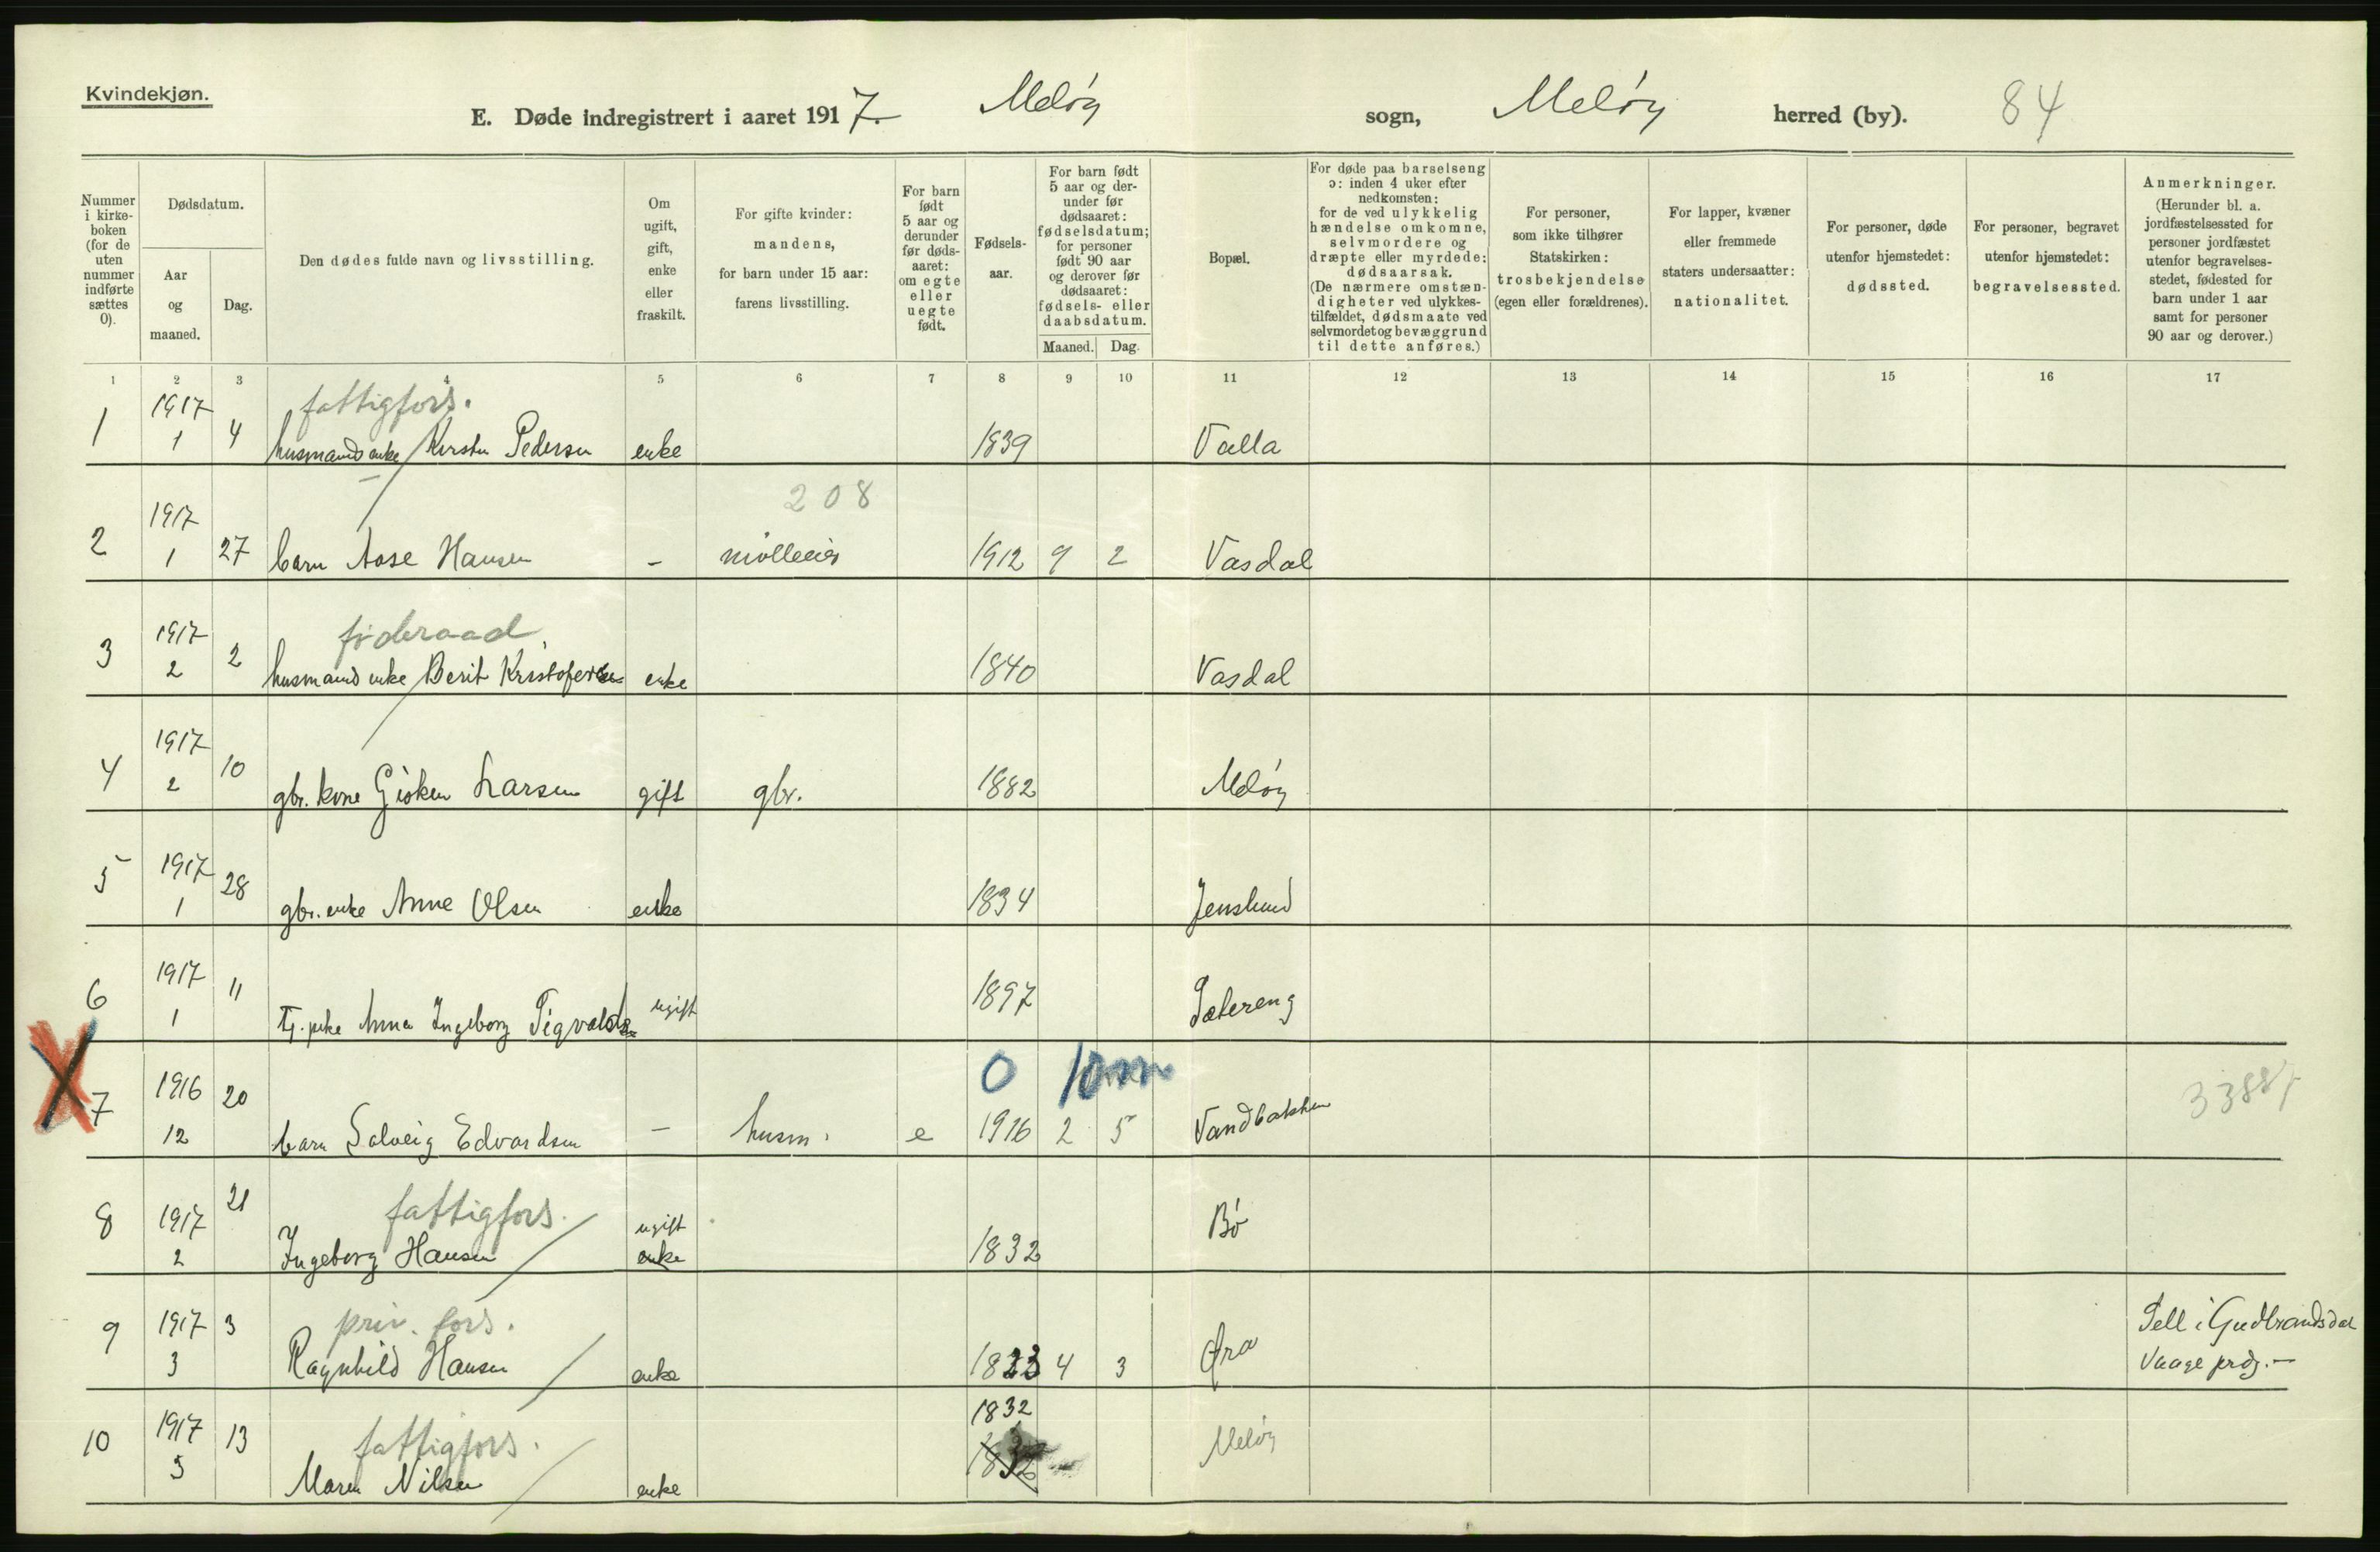 Kvindekjøn.
E. Døde indregistrert i aaret 1917. Meløy sogn, Meløy herred (by). 84
Nummer i kirkeboken (for de uten nummer indførte sættes 0).
Dødsdatum.
Aar og maaned.
Dag.
Den dødes fulde navn og livsstilling.
Om ugift, gift, enke eller fraskilt.
For gifte kvinder: mandens, for barn under 15 aar: farens livsstilling.
For barn født 5 aar og derunder før dødsaaret: om egte eller uegte født.
Fødselsaar.
For barn født 5 aar og derunder før dødsaaret: fødselsdatum; for personer født 90 aar og derover før dødsaaret: fødsels- eller daabsdatum.
Maaned. Dag.
Bopæl.
For døde paa barselseng ɔ: inden 4 uker efter nedkomsten: for de ved ulykkelig hændelse omkomne, selvmordere og dræpte eller myrdede: dødsaarsak. (De nærmere omstændigheter ved ulykkestilfældet, dødsmaate ved selvmordet og bevæggrund til dette anføres.)
For personer, som ikke tilhører Statskirken: trosbekjendelse (egen eller forældrenes).
For lapper, kvæner eller fremmede staters undersaatter: nationalitet.
For personer, døde utenfor hjemstedet: dødssted.
For personer, begravet utenfor hjemstedet: begravelsessted.
Anmerkninger. (Herunder bl. a. jordfæstelsessted for personer jordfæstet utenfor begravelsesstedet, fødested for barn under 1 aar samt for personer 90 aar og derover.)
1 2 3 4 5 6 7 8 9 10 11 12 13 14 15 16 17
1917 fattigfors.
1 1 4 husmands enke Kirsten Pedersen enke 1839 Valla
1917 208
2 1 27 barn Aase Hansen - mølleeier 1912 9 2 Vasdal
1917 føderaad
3 2 2 husmand enke Berit Kristofersen enke 1840 Vasdal
1917
4 2 10 gbr. kone Gjøken Larsen gift gbr. 1882 Meløy
1917
5 1 28 gbr. enke Anne Olsen enke 1834 Jenslund
1917
6 1 11 Tj. pike Anna Ingeborg Sigvaldsen ugift 1897 Sætereng
X 1916 0 10 mn
7 12 20 barn Solveig Edvardsen - husm. e 1916 2 5 Vandbakken
1917 21 fattigfors. ugift
8 2 Ingeborg Hansen enke 1832 Bø
1917 priv. fors. Sell i Gudbrandsdal
9 3 3 Ragnhild Hansen enke 1823 4 3 Øra Vaage prdg. -
1917 fattigfors. 1832
10 5 13 Maren Nilsen enke Meløy